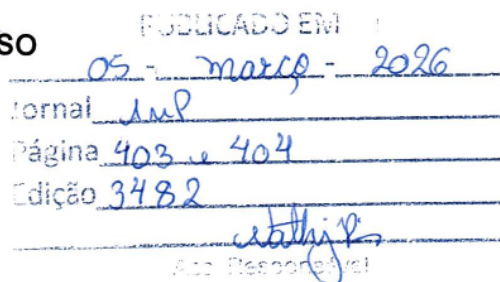 PUBLICADO EM
SO
05 - março - 2026
Jornal AMP
Página 403 e 404
Edição 3482
Ass. Responsável